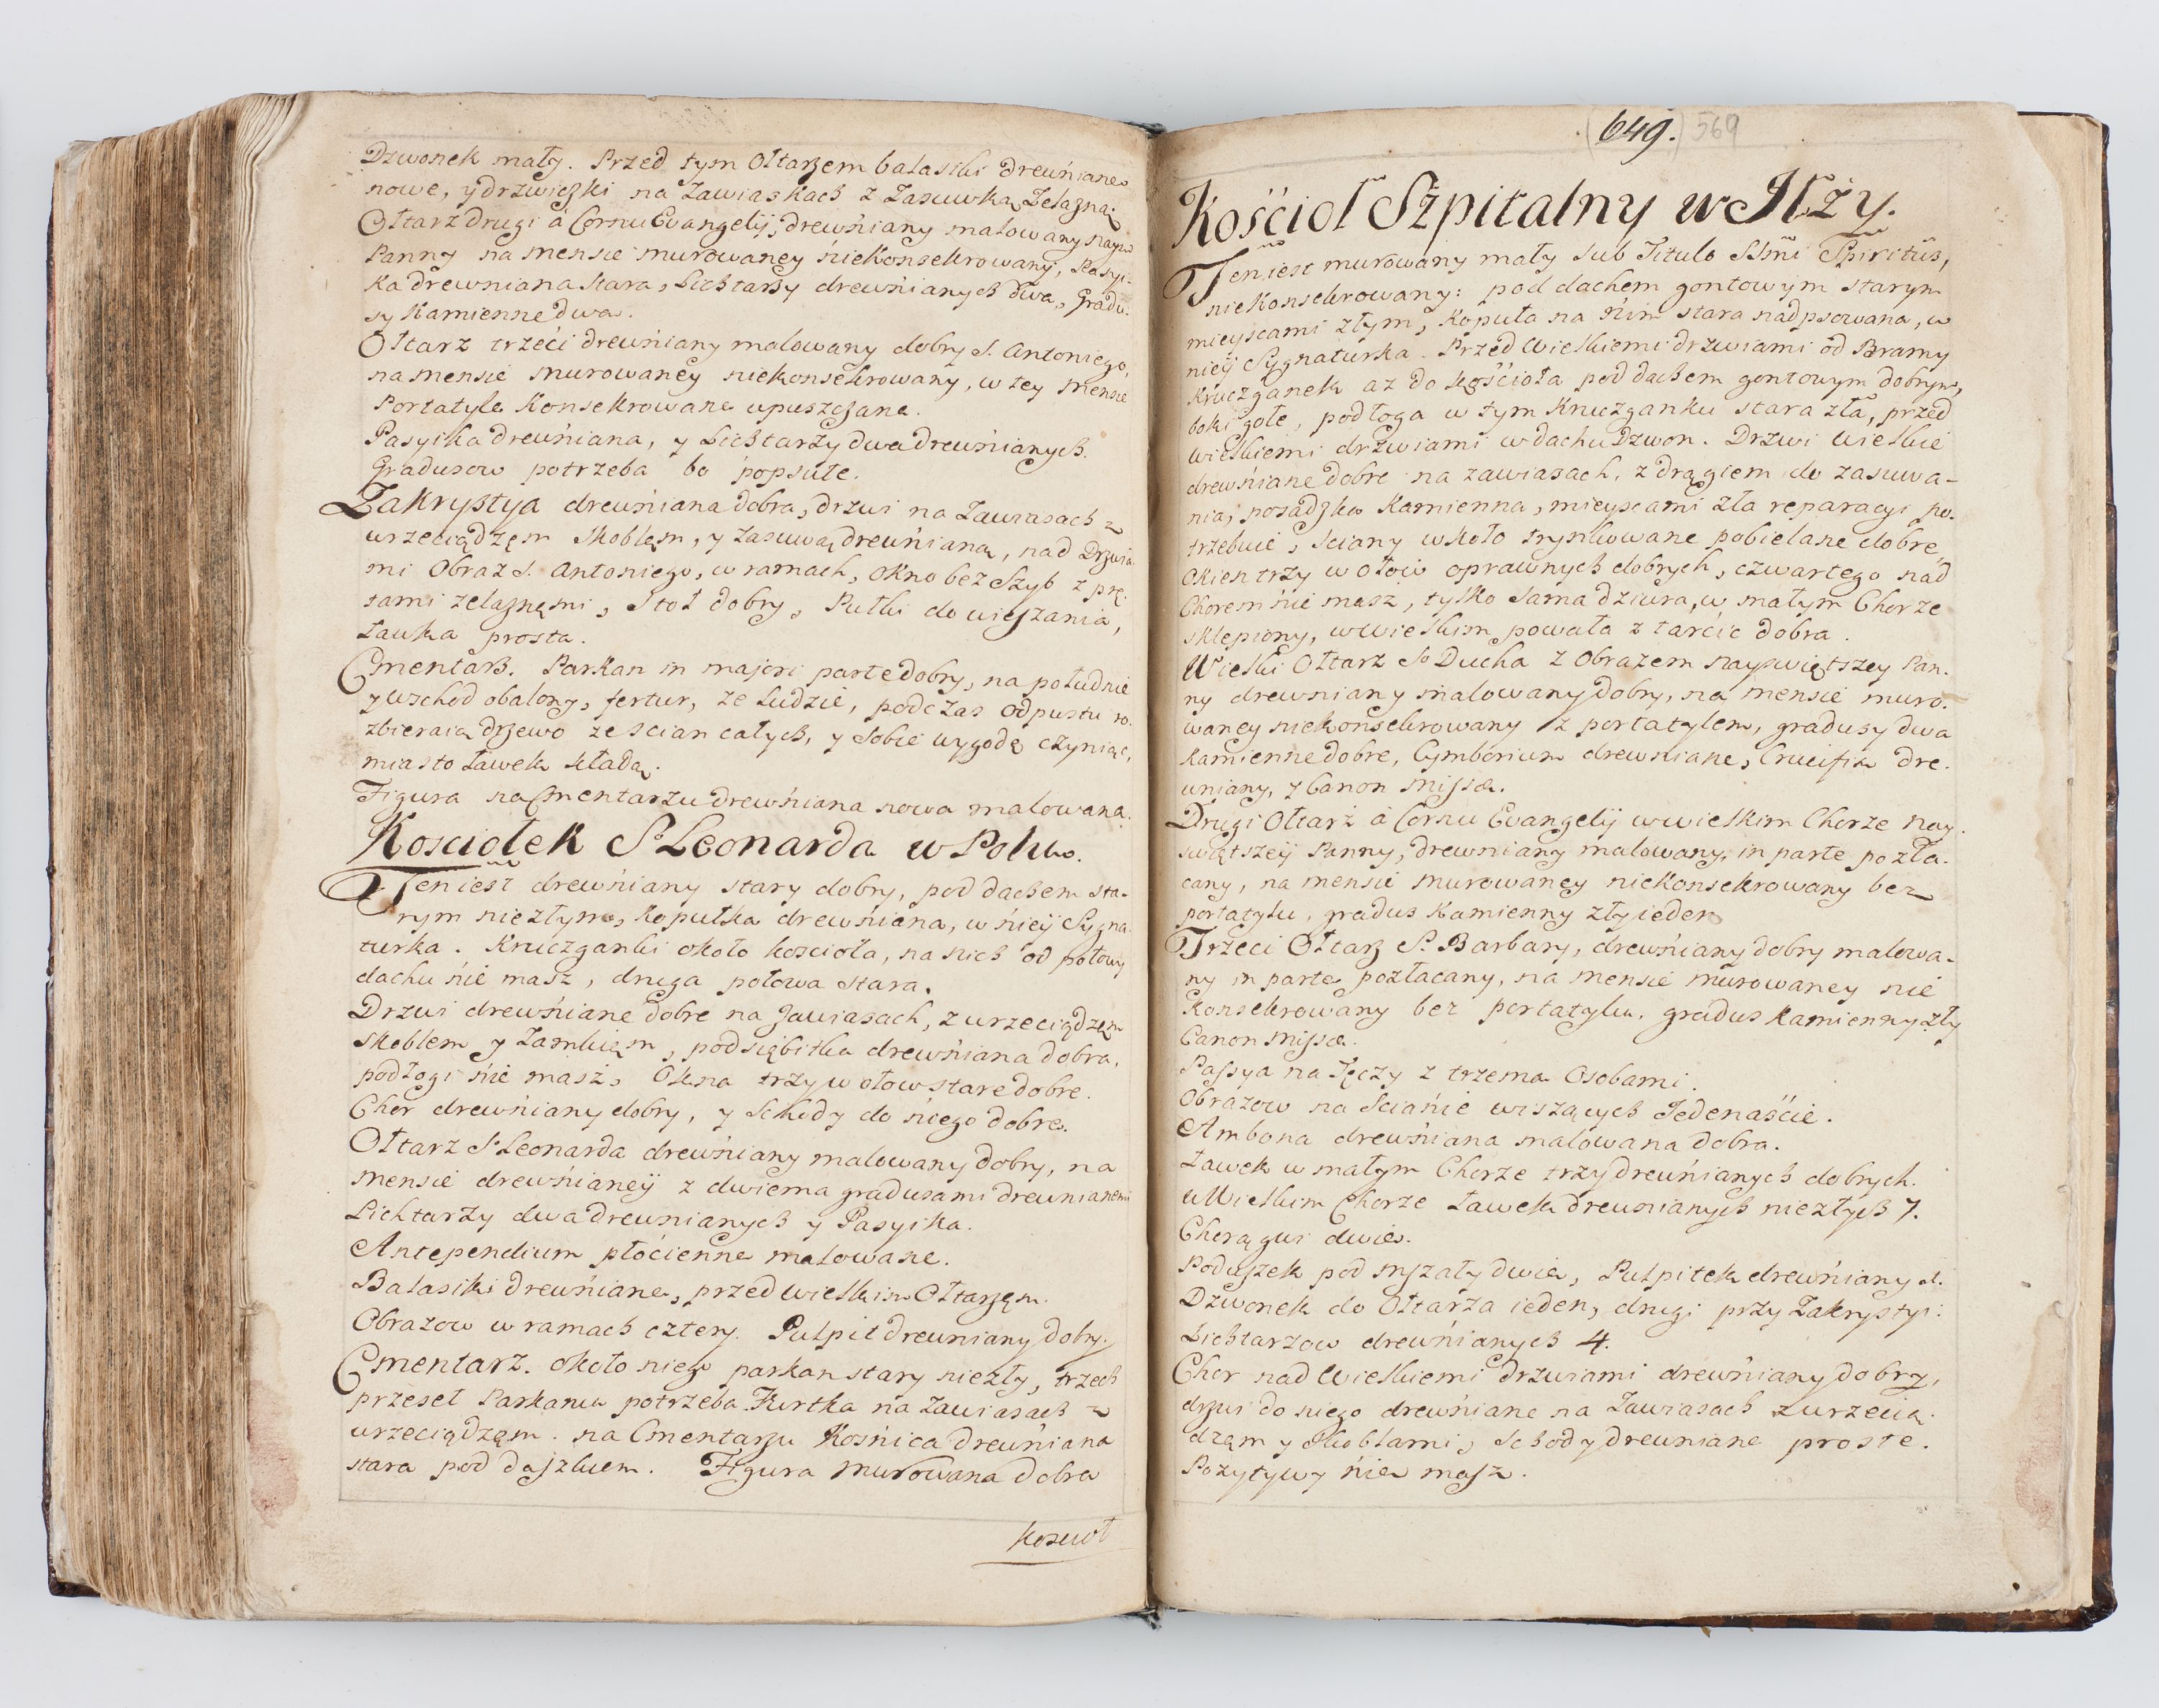 Dzwonek mały. Przed tym Ołtarzem balaski drewńiane
nowe, y drzwiczki na Zawiaskach z Zasuwką Zelazną.
Ołtarz drugi à Cornu Evangelij, drewńiany malowany Nayś
Panny na mensie murowaney ńiekonsekrowany, Pasyi-
ka drewniana stara, Lichtarzy drewńianych dwa, Gradu-
sy Kamienne dwa.
Ołtarz trzeći drewńiany malowany dobry S. Antoniego,
na mensie murowaney niekonsekrowany, w tey Mensie
Portatyle Konsekrowane upuszczane.
Pasyika drewńiana, y Lichtarzy dwa drewńianych.
Gradusow potrzeba bo popsute.
Zakrystya drewńiana dobra, drzwi na Zawiasach z
wrzeciądzęm Skoblęm, y Zasuwą drewńianą, nad Drzwia-
mi Obraz S. Antoniego, w ramach, Okno bez Szyb z prę-
tami zelaznęmi, Stoł dobry, Pułki do wieszania,
Ławka prosta.
Cmentarz. Parkan in majori parte dobry, na południe
y wschod obalony, fertur, ze Ludzie, podczas odpustu ro-
zbieraią drzewo ze scian całych, y sobie wygodę czyniąc,
miasto Ławek kładą.
Figura na Cmentarzu drewńiana nowa malowana.
Kosciołek S. Leonarda w Polu.
Ten iest drewńiany stary dobry, pod dachem sta-
rym niezłym, Kopułka drewńiana, w ńieij Sygna-
turka. Kruczganki około kosciola, na nich od połowy
dachu ńie masz, druga połowa stara.
Drzwi drewńiane dobre na Zawiasach, z wrzeciądzęm
skoblem y Zamkięm, podsiębitka drewńiana dobra,
podłogi ńie masz, Okna trzy w ołow stare dobre.
Chor drewńiany dobry, y Schody do ńiego dobre.
Ołtarz S. Leonarda drewńiany malowany dobry, na
mensie drewńianeij z dwiema gradusami drewnianemi
Lichtarzy dwa drewnianych y Pasyika.
Antependium płócienne malowane.
Balasiki drewńiane, przed wielkim Ołtarzęm.
Obrazow w ramach cztery. Pulpit drewniany dobry.
Cmentarz. około niego parkan stary niezły, trzech
przeseł Parkanu potrzeba. Furtka na Zawiasach z
wrzeciądzęm. na Cmentarzu Kośnica drewńiana
stara pod daszkiem. Figura murowana dobra
Koscioł
649. 569
Kośćioł Szpitalny w Iłży.
Ten iest murowany mały sub Titulo SSmi Spiritûs,
niekonsekrowany: pod dachem gontowym starym
mieyscami złym, Kopuła na ńim stara nadpsowana, w
nieij Sygnaturka. Przed Wielkiemi drzwiami od Bramy
Kruczganek az do kośćioła pod dachem gontowym dobrym,
boki gołe, podłoga w tym Kruczganku stara zła, przed
wielkiemi drzwiami w dachu Dzwon. Drzwi Wielkie
drewńiane dobre na zawiasach, z drągiem do zasuwa-
nia, posadzka Kamienna, mieyscami zła reparacyi po-
trzebuie, sciany wkoło tynkowane pobielane dobre,
Okien trzy w ołow oprawnych dobrych, czwartego nad
Chorem ńie masz, tylko sama dziura, w małym Chorze
sklepiony, w wielkim powała z tarcic dobra.
Wielki Ołtarz So Ducha z Obrazem nayswiętszey Pan-
ny drewniany malowany dobry, na mensie muro-
waney niekonsekrowany z portatylem, gradusy dwa
kamienne dobre, Cymborium drewniane, Crucifix dre-
wniany, y Canon Missæ.
Drugi Ołtarz à Cornu Evangelij w wielkim Chorze Nay-
swątszeij Panny, drewniany malowany, in parte pozła-
cany, na mensie murowaney niekonsekrowany bez
portatylu, gradus Kamienny zły ieden
Trzeci Ołtarz S. Barbary, drewńiany dobry malowa-
ny in parte pozłacany, na mensie murowaney nie
konsekrowany bez portatylu, gradus kamienny zły
Canon Missæ.
Passya na Tęczy z trzema Osobami.
Obrazow na Sciańie wiszących Jedenaśćie.
Ambona drewńiana malowana dobra.
Ławek w małym Chorze trzy drewńianych dobrych.
w Wielkim Chorze Ławek drewnianych niezłych 7.
Chorągwi dwie.
Poduszek pod mszały dwie, Pulpitek drewńiany 1.
Dzwonek do Ołtarza ieden, drugi przy Zakrystyi.
Lichtarzow drewńianych 4.
Chor nad Wielkiemi drzwiami drewńiany dobry,
drzwi do niego drewńiane na Zawiasach z wrzecią-
dzęm y Skoblami, Schody drewniane proste.
Pozytywy ńie masz.